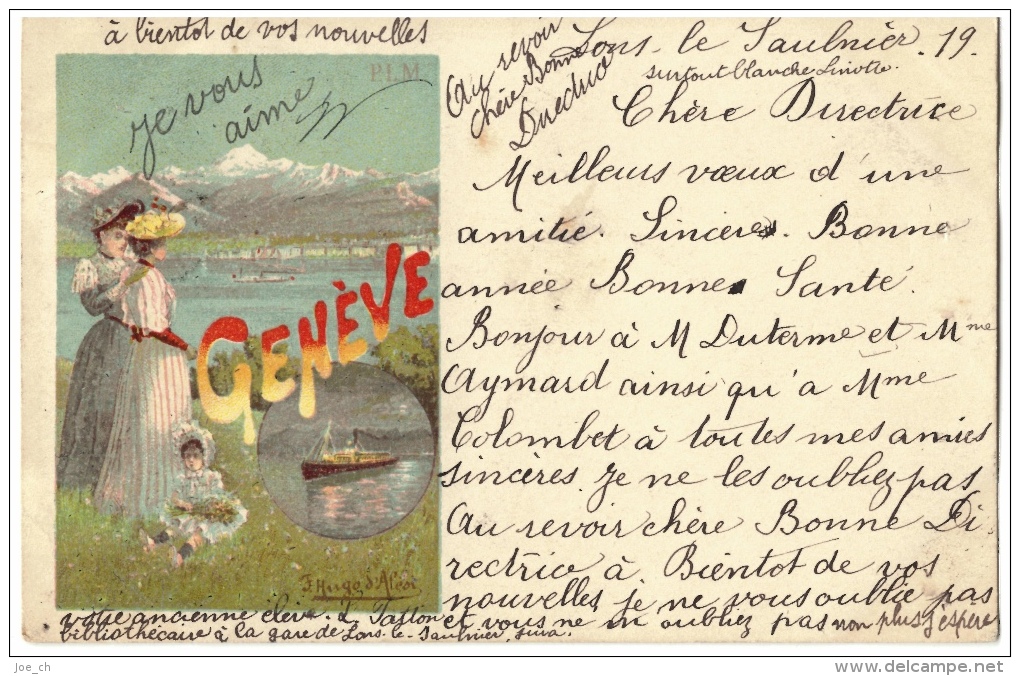 à bientot de vos nouvelles
je vous
aime
Au revoir
chère Bonne
Directrice
Lons-le Saulnier. 19.
surtout blanche Linotte.
Chère Directrice
Meilleurs vœux d'une
amitié. Sincère. Bonne
année Bonne Santé.
Bonjour à M Duterme et Mme
Aymard ainsi qu'a Mme
Colombet à toutes mes amies
sincères. je ne les oubliez pas
Au revoir chère Bonne Di
rectrice à Bientot de vos
nouvelles, je ne vous oublie pas
et vous ne m oubliez pas non plus j'espère
votre ancienne élève. L. Tatton
bibliothécaire à la gare de Lons-le-Saulnier, Jura.
P.L.M
GENÈVE
F. Hugo d'Alési
Joe_ch
www.delcampe.net